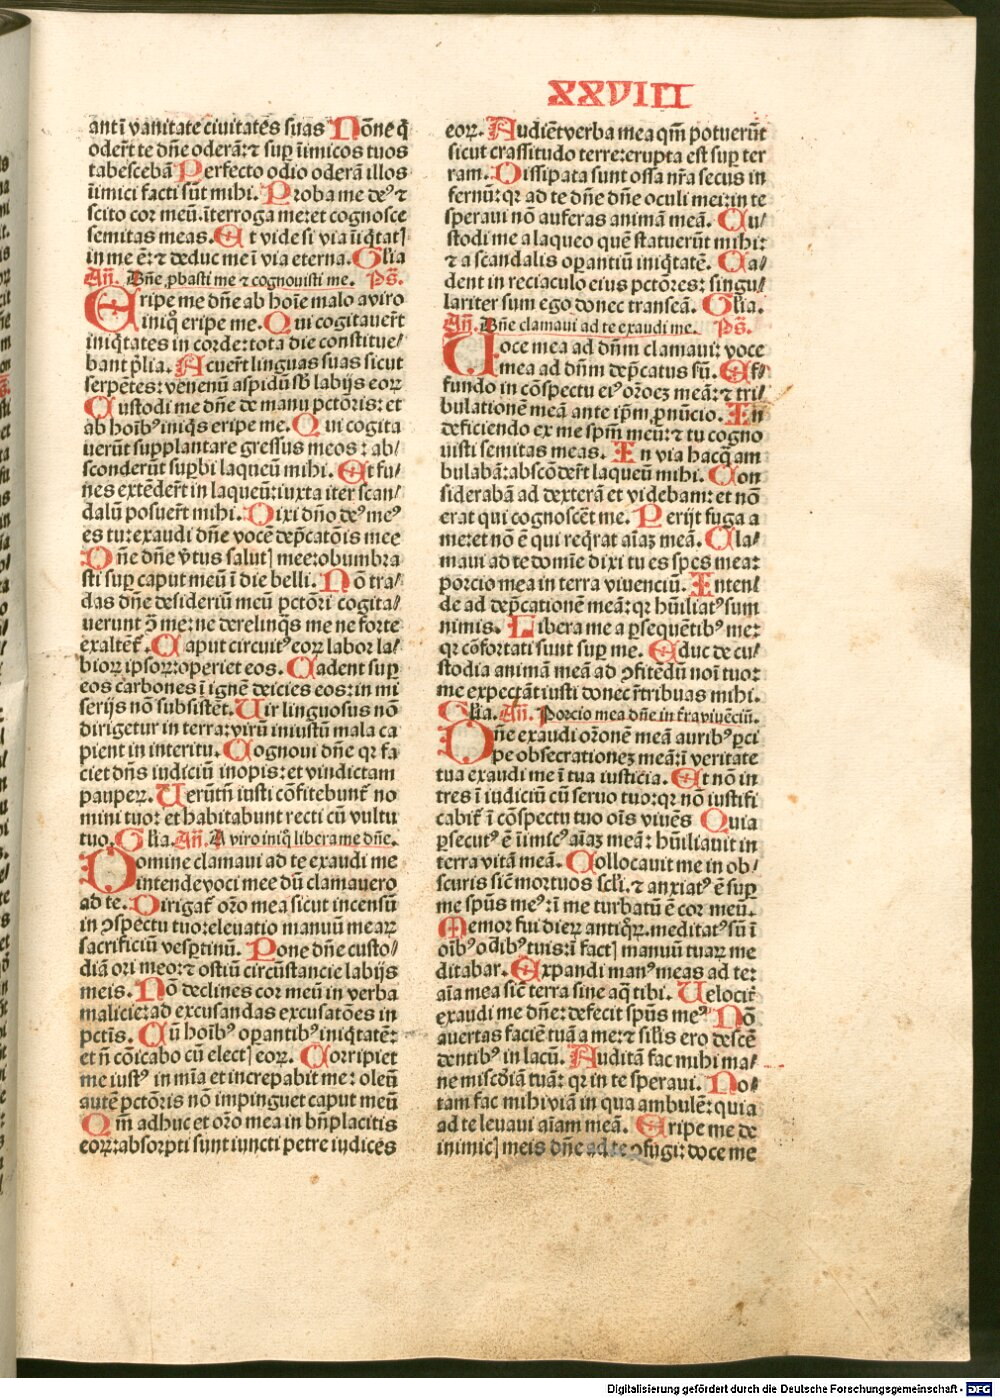 XXVIII
antī vanitate civitatēs suas Nōne q̄
oder̄t te dn̄e oderā: ⁊ suꝑ iīmicos tuos
tabescebā Perfecto odio oderā illos
iīmici facti sūt mihi. Proba me deꝰ ⁊
scito cor meū. īterroga me: et cognosce
semitas meas. Et vide si via iīq̄tatꝭ
in me ē: ⁊ deduc me ī via eterna. Glīa
Añ. Dn̄e ꝓbasti me ⁊ cognouisti me. Ps̄.
Eripe me dn̄e ab hoīe malo a viro
iniq̊ eripe me. Qui cogitauer̄t
iniq̄tates in corde: tota die constitue⸗
bant p̄lia. Acuer̄t linguas suas sicut
serpētes: venenū aspidū sb̄ labijs eoꝝ
Custodi me dn̄e de manu pctōris: et
ab hoībꝰ iniq̄s eripe me. Qui cogita
uerūt supplantare gressus meos: ab⸗
sconderūt suꝑbi laqueū mihi. Et fu⸗
nes extēder̄t in laqueū: iuxta iter scan⸗
dalū posuer̄t mihi. Dixi dn̄o deꝰ meꝰ
es tu: exaudi dn̄e vocē dep̄catōis mee
Dn̄e dn̄e v̄tus salutꝭ mee: obumbra
sti suꝑ caput meū ī die belli. Nō tra⸗
das dn̄e desideriū meū pctōri cogita⸗
uerunt ꝯ̄ me: ne derelinq̄s me ne forte
exaltēt̄. Caput circuitꝰ eoꝝ labor la⸗
bioꝝ ipsoꝝ: operiet eos. Cadent suꝑ
eos carbones ī ignē deicies eos: in mi
serijs nō subsistēt. Uir linguosus nō
dirigetur in terra: virū iniustū mala ca
pient in interitu. Cognoui dn̄e qr̄ fa
ciet dn̄s iudiciū inopis: et vindictam
pauperꝝ. Uerūtn̄ iusti cōfitebunt̄ no
mini tuo: et habitabunt recti cū vultu
tuo. Glīa. Añ. A viro iniq̊ libera me dn̄e.
Domine clamaui ad te exaudi me
intende voci mee dū clamauero
ad te. Dirigat̄ or̄o mea sicut incensū
in ꝯspectu tuo: eleuatio manuū meaꝝ
sacrificiū vesꝑtinū. Pone dn̄e custo⸗
diā ori meo: ⁊ ostiū circūstancie labijs
meis. Nō declines cor meū in verba
malicie: ad excusandas excusatōes in
pctis. Cū hoībꝰ oꝑantibꝰ iniq̄tatē:
et n̄ cōicabo cū electꝭ eoꝝ. Corripiet
me iustꝰ in mīa et increpabit me: oleū
autē pctōris nō impinguet caput meū
Qm̄ adhuc et or̄o mea in bn̄placitis
eoꝝ: absorpti sunt iuncti petre iudices
eoꝝ. Audiēt verba mea qm̄ potuerūt
sicut crassitudo terre: erupta est suꝑ ter
ram. Dissipata sunt ossa nr̄a secus in
fernū: qr̄ ad te dn̄e dn̄e oculi mei: in te
speraui nō auferas animā meā. Cu⸗
stodi me a laqueo quē statuerūt mihi:
⁊ a scandalis oꝑantiū iniq̄tatē. Ca⸗
dent in reciaculo eius pctōres: singu⸗
lariter sum ego donec transeā. Glīa.
Añ. Dn̄e clamaui ad te exaudi me. Ps̄.
Uoce mea ad dn̄m clamaui: voce
mea ad dn̄m dep̄catus sū. Ef⸗
fundo in cōspectu eiꝰ or̄oeꝫ meā: ⁊ tri⸗
bulationē meā ante ip̄m ꝓnūcio. In
deficiendo ex me spm̄ meū: ⁊ tu cogno
uisti semitas meas. In via hac q̄ am
bulabā: abscōder̄t laqueū mihi. Con
siderabā ad dexterā et videbam: et nō
erat qui cognoscēt me. Perijt fuga a
me: et nō ē qui reqr̄at aīaꝫ meā. Cla⸗
maui ad te domīe dixi tu es spes mea:
porcio mea in terra viuenciū. Inten⸗
de ad dep̄cationē meā: qr̄ hūiliatꝰ sum
nimis. Libera me a ꝑsequētibꝰ me:
qr̄ cōfortati sunt suꝑ me. Educ de cu⸗
stodia animā meā ad ꝯfitēdū noī tuo:
me expectāt iusti donec r̄tribuas mihi.
Glīa. Añ. Porcio mea dn̄e in tr̄a viuēciū.
Dn̄e exaudi or̄onē meā auribꝰ ꝑci
pe obsecrationeꝫ meā: ī veritate
tua exaudi me ī tua iusticia. Et nō in
tres ī iudiciū cū seruo tuo: qr̄ nō iustifi
cabit̄ ī cōspectu tuo oīs viuēs Quia
ꝑsecutꝰ ē iīmicꝰ aīaꝫ meā: hūiliauit in
terra vitā meā. Collocauit me in ob⸗
scuris sic̄ mortuos scl̄i. ⁊ anxiatꝰ ē suꝑ
me spūs meꝰ: ī me turbatū ē cor meū.
Memor fui dieꝝ antiq̊ꝝ. meditatꝰ sū ī
oībꝰ oꝑibꝰ tuis: ī factꝭ manuū tuaꝝ me
ditabar. Expandi manꝰ meas ad te:
aīa mea sic̄ terra sine aq̄ tibi. Uelocit̄
exaudi me dn̄e: defecit spūs meꝰ Nō
auertas faciē tuā a me: ⁊ sil̄is ero descē
dentibꝰ in lacū. Auditā fac mihi ma⸗
ne misc̄diā tuā: qr̄ in te speraui. No⸗
tam fac mihi viā in qua ambulē: quia
ad te leuaui aīam meā. Eripe me de
inimicꝭ meis dn̄e ad te ꝯfugi: doce me
Digitalisierung gefördert durch die Deutsche Forschungsgemeinschaft - DFG